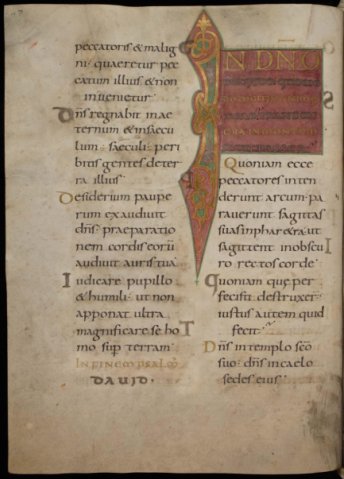 peccatoris & malig
ni · quaeretur pec
catum illius & non
invenietur ·
Dns regnabit in ae
ternum & in saecu
lum · saeculi · peri
bitis gentes de ter
ra illius ·
Desiderium paupe
rum exaudivit
dns praeparatio
nem cordis eorū
audivit auris tua
Iudicare pupillo
& humili · ut non
apponat ultra
magnificare se ho
mo sup terram ·
IN FINEM PSALM
DAVID ·
IN DNO
Quoniam ecce
peccatores inten
derunt arcum · pa
raverunt sagittas
suas in phar&ra · ut
sagittent in obscu
ro rectos corde ·
Quoniam que per
fecisti · destruxer
iustus autem quid
fecit ·
Dns in templo scō
suo · dns in caelo
sedes eius ·